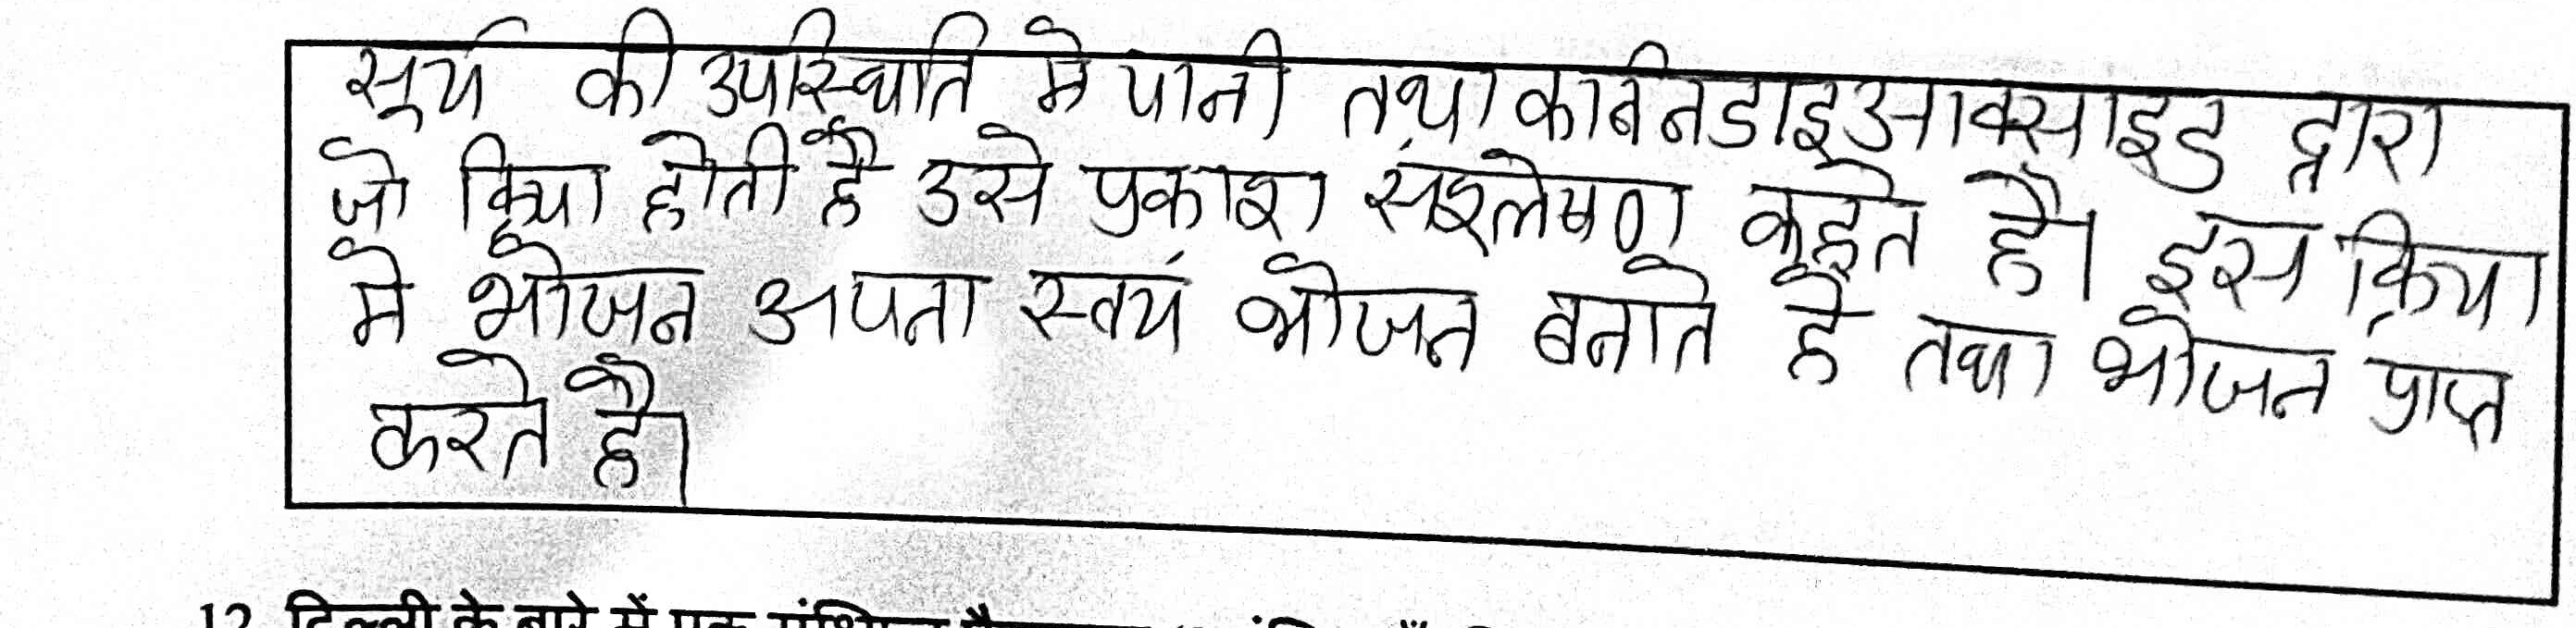 सूर्य की उपस्थिति मे पानी तथा कार्बनडाइआक्साइड द्वारा
जो क्रिया होती है उसे प्रकाश संश्लेषण कहते है। इस क्रिया
मे भोजन अपना स्वयं भोजन बनाते है तथा भोजन प्राप्त
करते है।
12 दिल्ली के बारे में एक